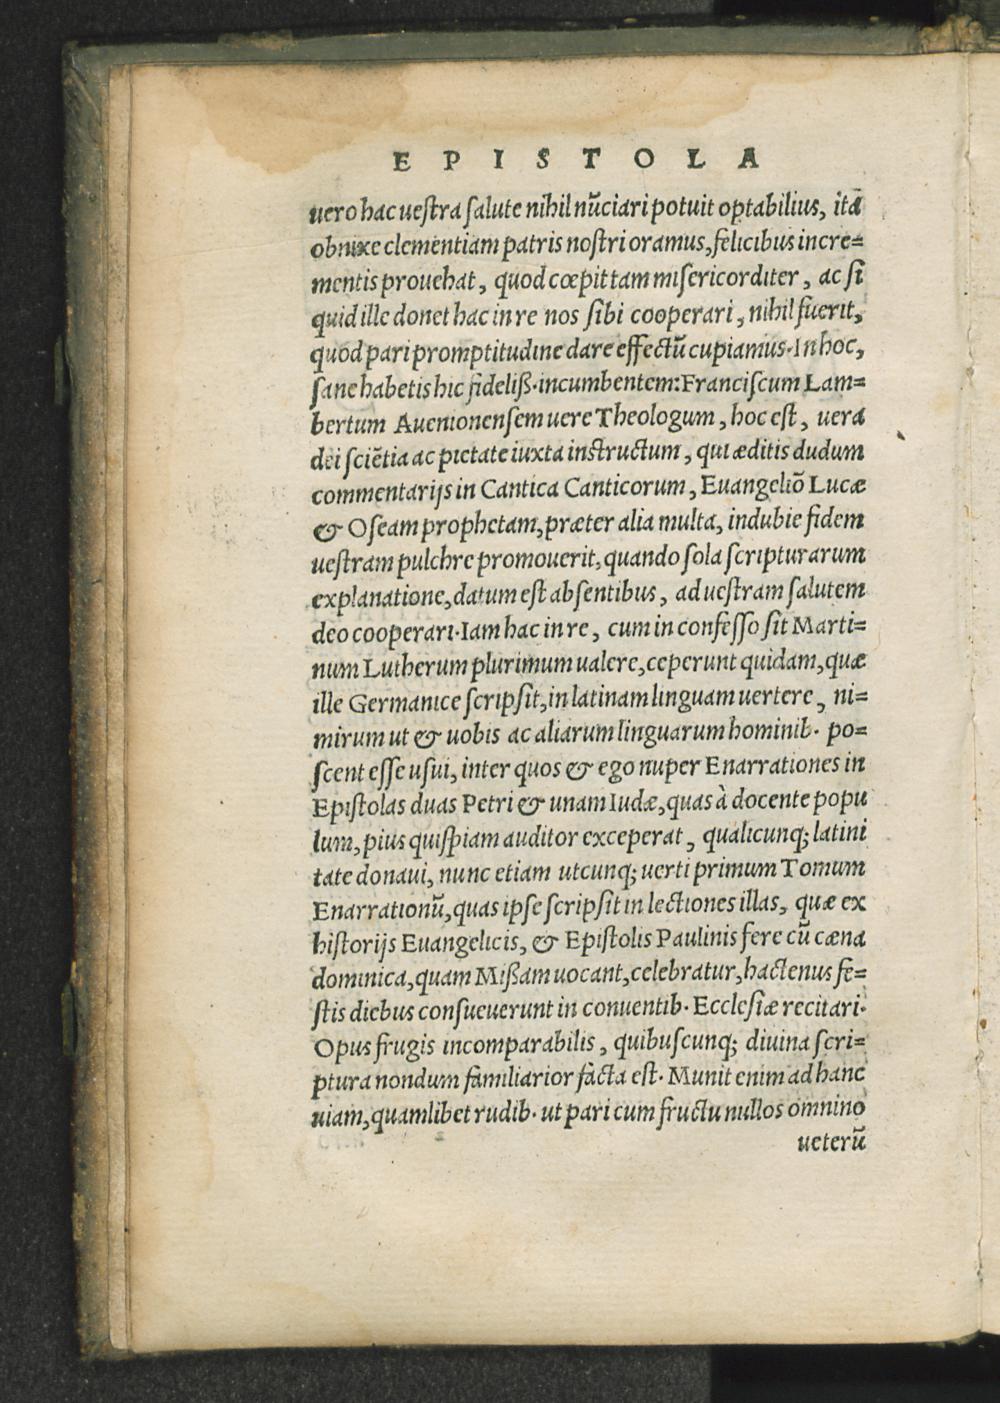 EPISTOLA
uero hac uestra salute nihil nũciari potuit optabilius, ita
obnixe clementiam patris nostri oramus, felicibus incre=
mentis prouehat, quod cœpit tam misericorditer, ac si
quid ille donet hac in re nos sibi cooperari, nihil fuerit,
quod pari promptitudine dare effectũ cupiamus. In hoc,
sane habetis hic fideliß. incumbentem: Franciscum Lam=
bertum Auenionensem uere Theologum, hoc est, uera
dei sciẽtia ac pietate iuxta instructum, qui æditis dudum
commentarijs in Cantica Canticorum, Euangeliõ Lucæ
& Oseam prophetam, præter alia multa, indubie fidem
uestram pulchre promouerit, quando sola scripturarum
explanatione, datum est absentibus, ad uestram salutem
deo cooperari. Iam hac in re, cum in confesso sit Marti=
num Lutherum plurimum ualere, ceperunt quidam, quæ
ille Germanice scripsit, in latinam linguam uertere, ni=
mirum ut & uobis ac aliarum linguarum hominib. po=
scent esse usui, inter quos & ego nuper Enarrationes in
Epistolas duas Petri & unam Iudæ, quas à docente popu
lum, pius quispiam auditor exceperat, qualicunq; latini
tate donaui, nunc etiam utcunq; uerti primum Tomum
Enarrationũ, quas ipse scripsit in lectiones illas, quæ ex
historijs Euangelicis, & Epistolis Paulinis fere cũ cæna
dominica, quam Mißam uocant, celebratur, hactenus fe=
stis diebus consueuerunt in conuentib. Ecclesiæ recitari.
Opus frugis incomparabilis, quibuscunq; diuina scri=
ptura nondum familiarior facta est. Munit enim ad hanc
uiam, quamlibet rudib. ut pari cum fructu nullos omnino
ueterũ